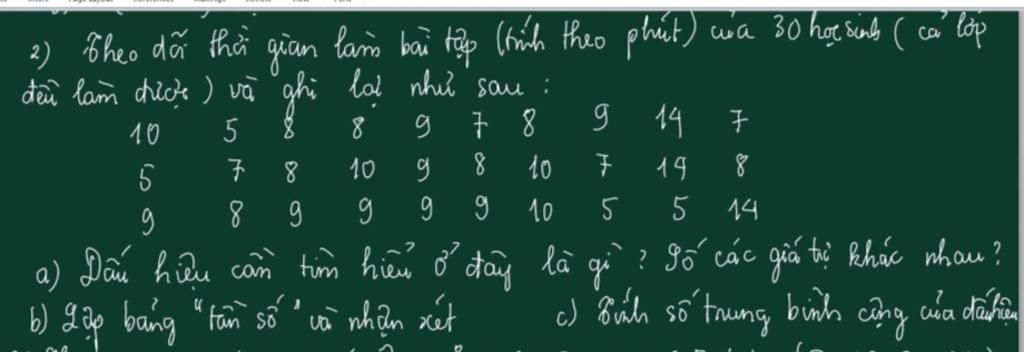 2) Theo dõi thời gian làm bài tập (tính theo phút) của 30 học sinh (cả lớp
đều làm được) và ghi lại như sau :
10 5 8 8 9 7 8 9 14 7
5 7 8 10 9 8 10 7 14 8
9 8 9 9 9 9 10 5 5 14
a) Dấu hiệu cần tìm hiểu ở đây là gì ? Số các giá trị khác nhau ?
b) Lập bảng "tần số" và nhận xét c) Tính số trung bình cộng của dấu hiệu